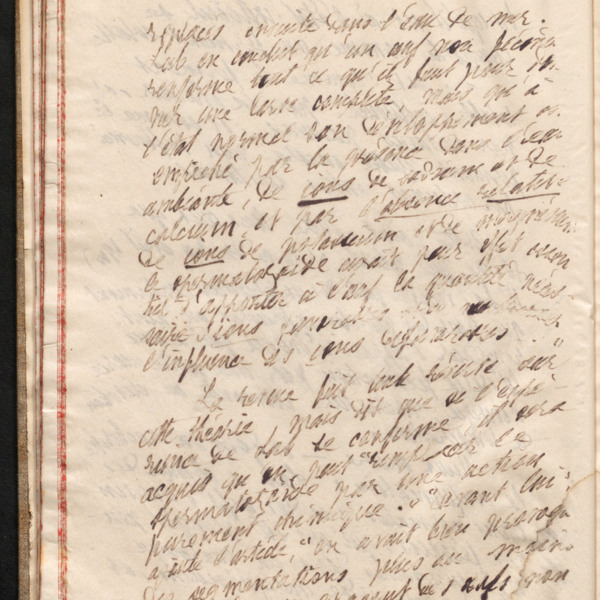 replacés ensuite dans l'eau de mer.
Loeb en conclut qu'un œuf non fécondé
renferme tout ce qu'il faut pour for-
mer une larve complète, mais qu'à
l'état normal son développement est
empêché par la présence dans l'eau
ambiante, de ions de sodium et de
calcium, et par l'absence relative
de ions de potassium et de magnésium.
le spermatozoïde aurait pour effet essen
tiel d'apporter à l'œuf la quantité néces-
saire d'ions
l'influence des ions défavorables."
La revue fait une réserve sur
cette théorie, mais dit que si l'expé-
rience de Loeb se confirme, il sera
acquis qu'on peut "remplacer le
spermatozoïde par une action
purement chimique." "Avant lui"
ajoute l'article, "on avait bien provoqué
des segmentations plus ou moins
des œufs non